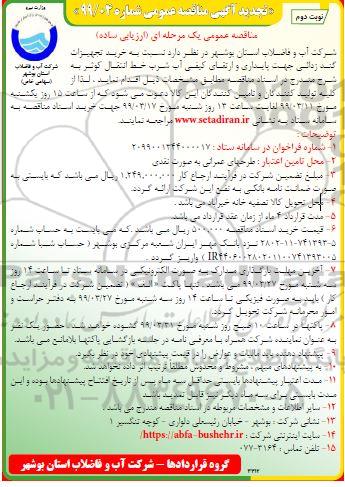 نوبت دوم
«تجدید آگهی مناقصه عمومی شماره ۹۹/۰۴»
شرکت آب و فاضلاب
استان بوشهر
(سهامی خاص)
مناقصه عمومی یک مرحله ای (ارزیابی ساده)
شرکت آب و فاضلاب استان بوشهر در نظر دارد نسبت به خرید تجهیزات
کندزدائی جهت پایداری و ارتقای کیفی آب شرب خط انتقال کوثر به
شرح مندرج در اسناد مناقصه مطابق مشخصات ذیل اقدام نماید . لذا از
کلیه تولید کنندگان و تامین کنندگان این کالا دعوت می شود که از ساعت ۱۵ روز یکشنبه
مورخ ۹۹/۰۳/۱۱ لغایت ساعت ۱۴ روز شنبه مورخ ۹۹/۰۳/۱۷ جهت خرید اسناد مناقصه به
سامانه ستاد به نشانی www.setadiran.ir مراجعه نمایند.
توضیحات :
۱- شماره فراخوان در سامانه ستاد : ۲۰۹۹۰۰۱۳۴۴۰۰۰۰۱۷
۲- محل تامین اعتبار : طرحهای عمرانی به صورت نقدی
۳- مبلغ تضمین شرکت در فرآیند ارجاع کار ۱,۲۴۹,۰۰۰,۰۰۰ ریال می باشد که بایستی به
صورت ضمانت نامه بانکی به نفع این شرکت ارائه گردد.
۴- محل تحویل کالا تصفیه خانه خیرآباد می باشد .
۵- مدت قرارداد ۴ ماه از زمان عقد قرارداد می باشد.
۶- قیمت خرید اسناد مناقصه ۵۰۰,۰۰۰ ریال می باشد که می بایست به حساب شماره
نزد بانک مهر ایران شعبه مرکزی بوشهر ( حساب شبا شماره
) واریز گردد .
۷- آخرین مهلت بارگذاری مدارک به صورت الکترونیکی در سامانه ستاد تا ساعت ۱۴ روز
سه شنبه مورخ ۹۹/۰۳/۲۷ می باشد. ضمنا پاکت « الف » ( تضمین شرکت در فرآیند ارجاع
کار ) باید به صورت فیزیکی تا ساعت ۱۴ روز سه شنبه مورخ ۹۹/۰۳/۲۷ به دفتر حراست و
امور محرمانه شرکت تحویل گردد.
۸- پاکتها در ساعت ۱۰ صبح روز شنبه مورخ ۹۹/۰۳/۳۱ گشوده خواهد شد. حضور یک نفر
به عنوان نماینده شرکت همراه با معرفی نامه در جلسه بازگشایی پاکتها بلامانع می باشد.
۹- پیشنهاددهنده باید مالیات و عوارض را در قیمت پیشنهادی خود در نظر بگیرد.
۱۰- به پیشنهادهای مبهم ، مشروط و مخدوش مطلقا ترتیب اثر داده نخواهد شد.
۱۱- مدت اعتبار پیشنهادها بایستی حداقل سه ماه پس از تاریخ افتتاح پیشنهادها بوده و این
مدت بایستی برای سه ماه دیگر نیز قابل تمدید باشد
۱۲- سایر اطلاعات و مشخصات مربوطه در اسناد مناقصه مندرج می باشد .
۱۳- نشانی شرکت : بوشهر - خیابان رئیسعلی دلواری - کوچه تنگسیر ۱
۱۴- سایت اینترنتی شرکت : https://abfa-bushehr.ir/
۱۵- تلفن تماس : ۳۱۶۴-۰۷۷
گروه قراردادها – شرکت آب و فاضلاب استان بوشهر